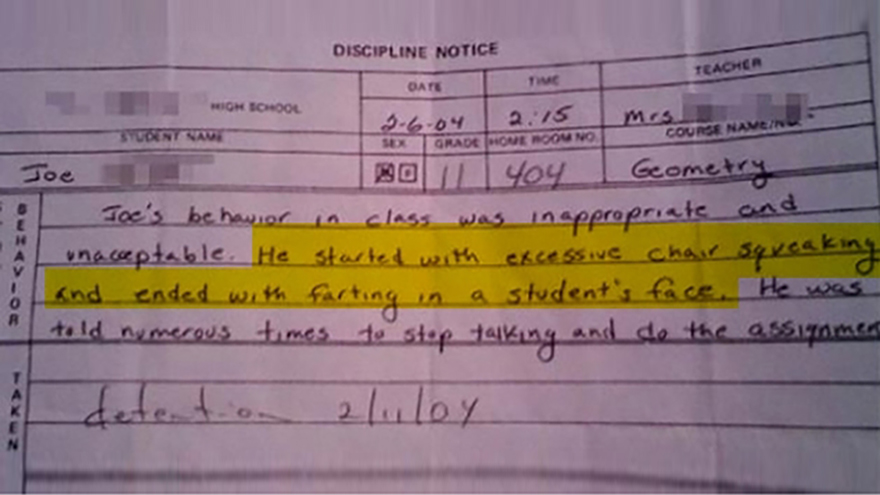 DISCIPLINE NOTICE
DATE TIME TEACHER
HIGH SCHOOL 2-6-04 2:15 Mrs
STUDENT NAME SEX GRADE HOME ROOM NO. COURSE NAME/NO.
Joe 11 404 Geometry
BEHAVIOR
Joe's behavior in class was inappropriate and
unacceptable. He started with excessive chair squeaking
and ended with farting in a student's face. He was
told numerous times to stop talking and do the assignmen
TAKEN
detention 2/11/04